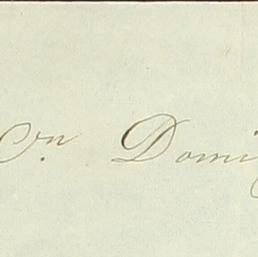 Cn. Domi